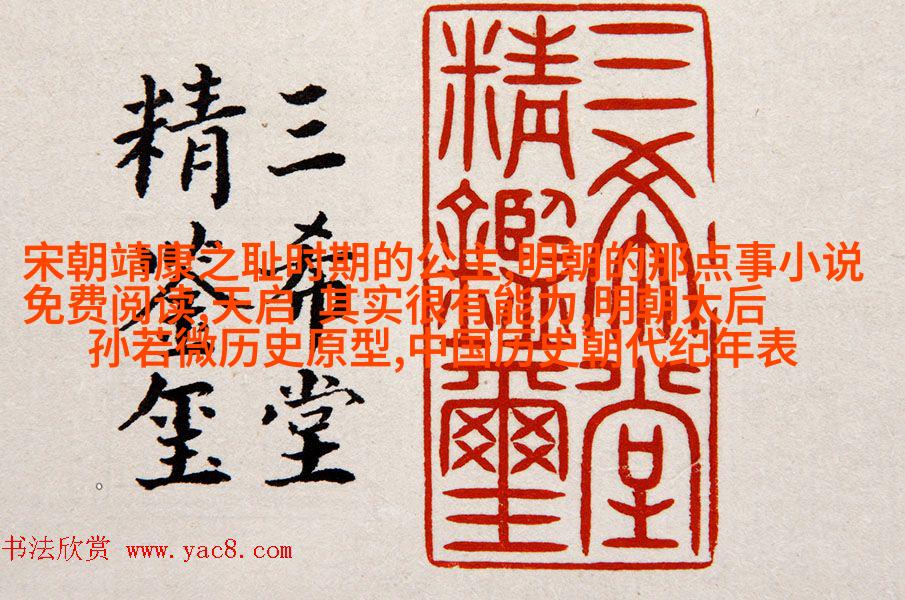 三希堂
精鉴玺
三希堂
精鑑璽
宋朝靖康之耻时期的公主,明朝的那点事小说
免费阅读,天启 其实很有能力,明朝太后
孙若微历史原型,中国历史朝代纪年表
书法欣赏 www.yac8.com